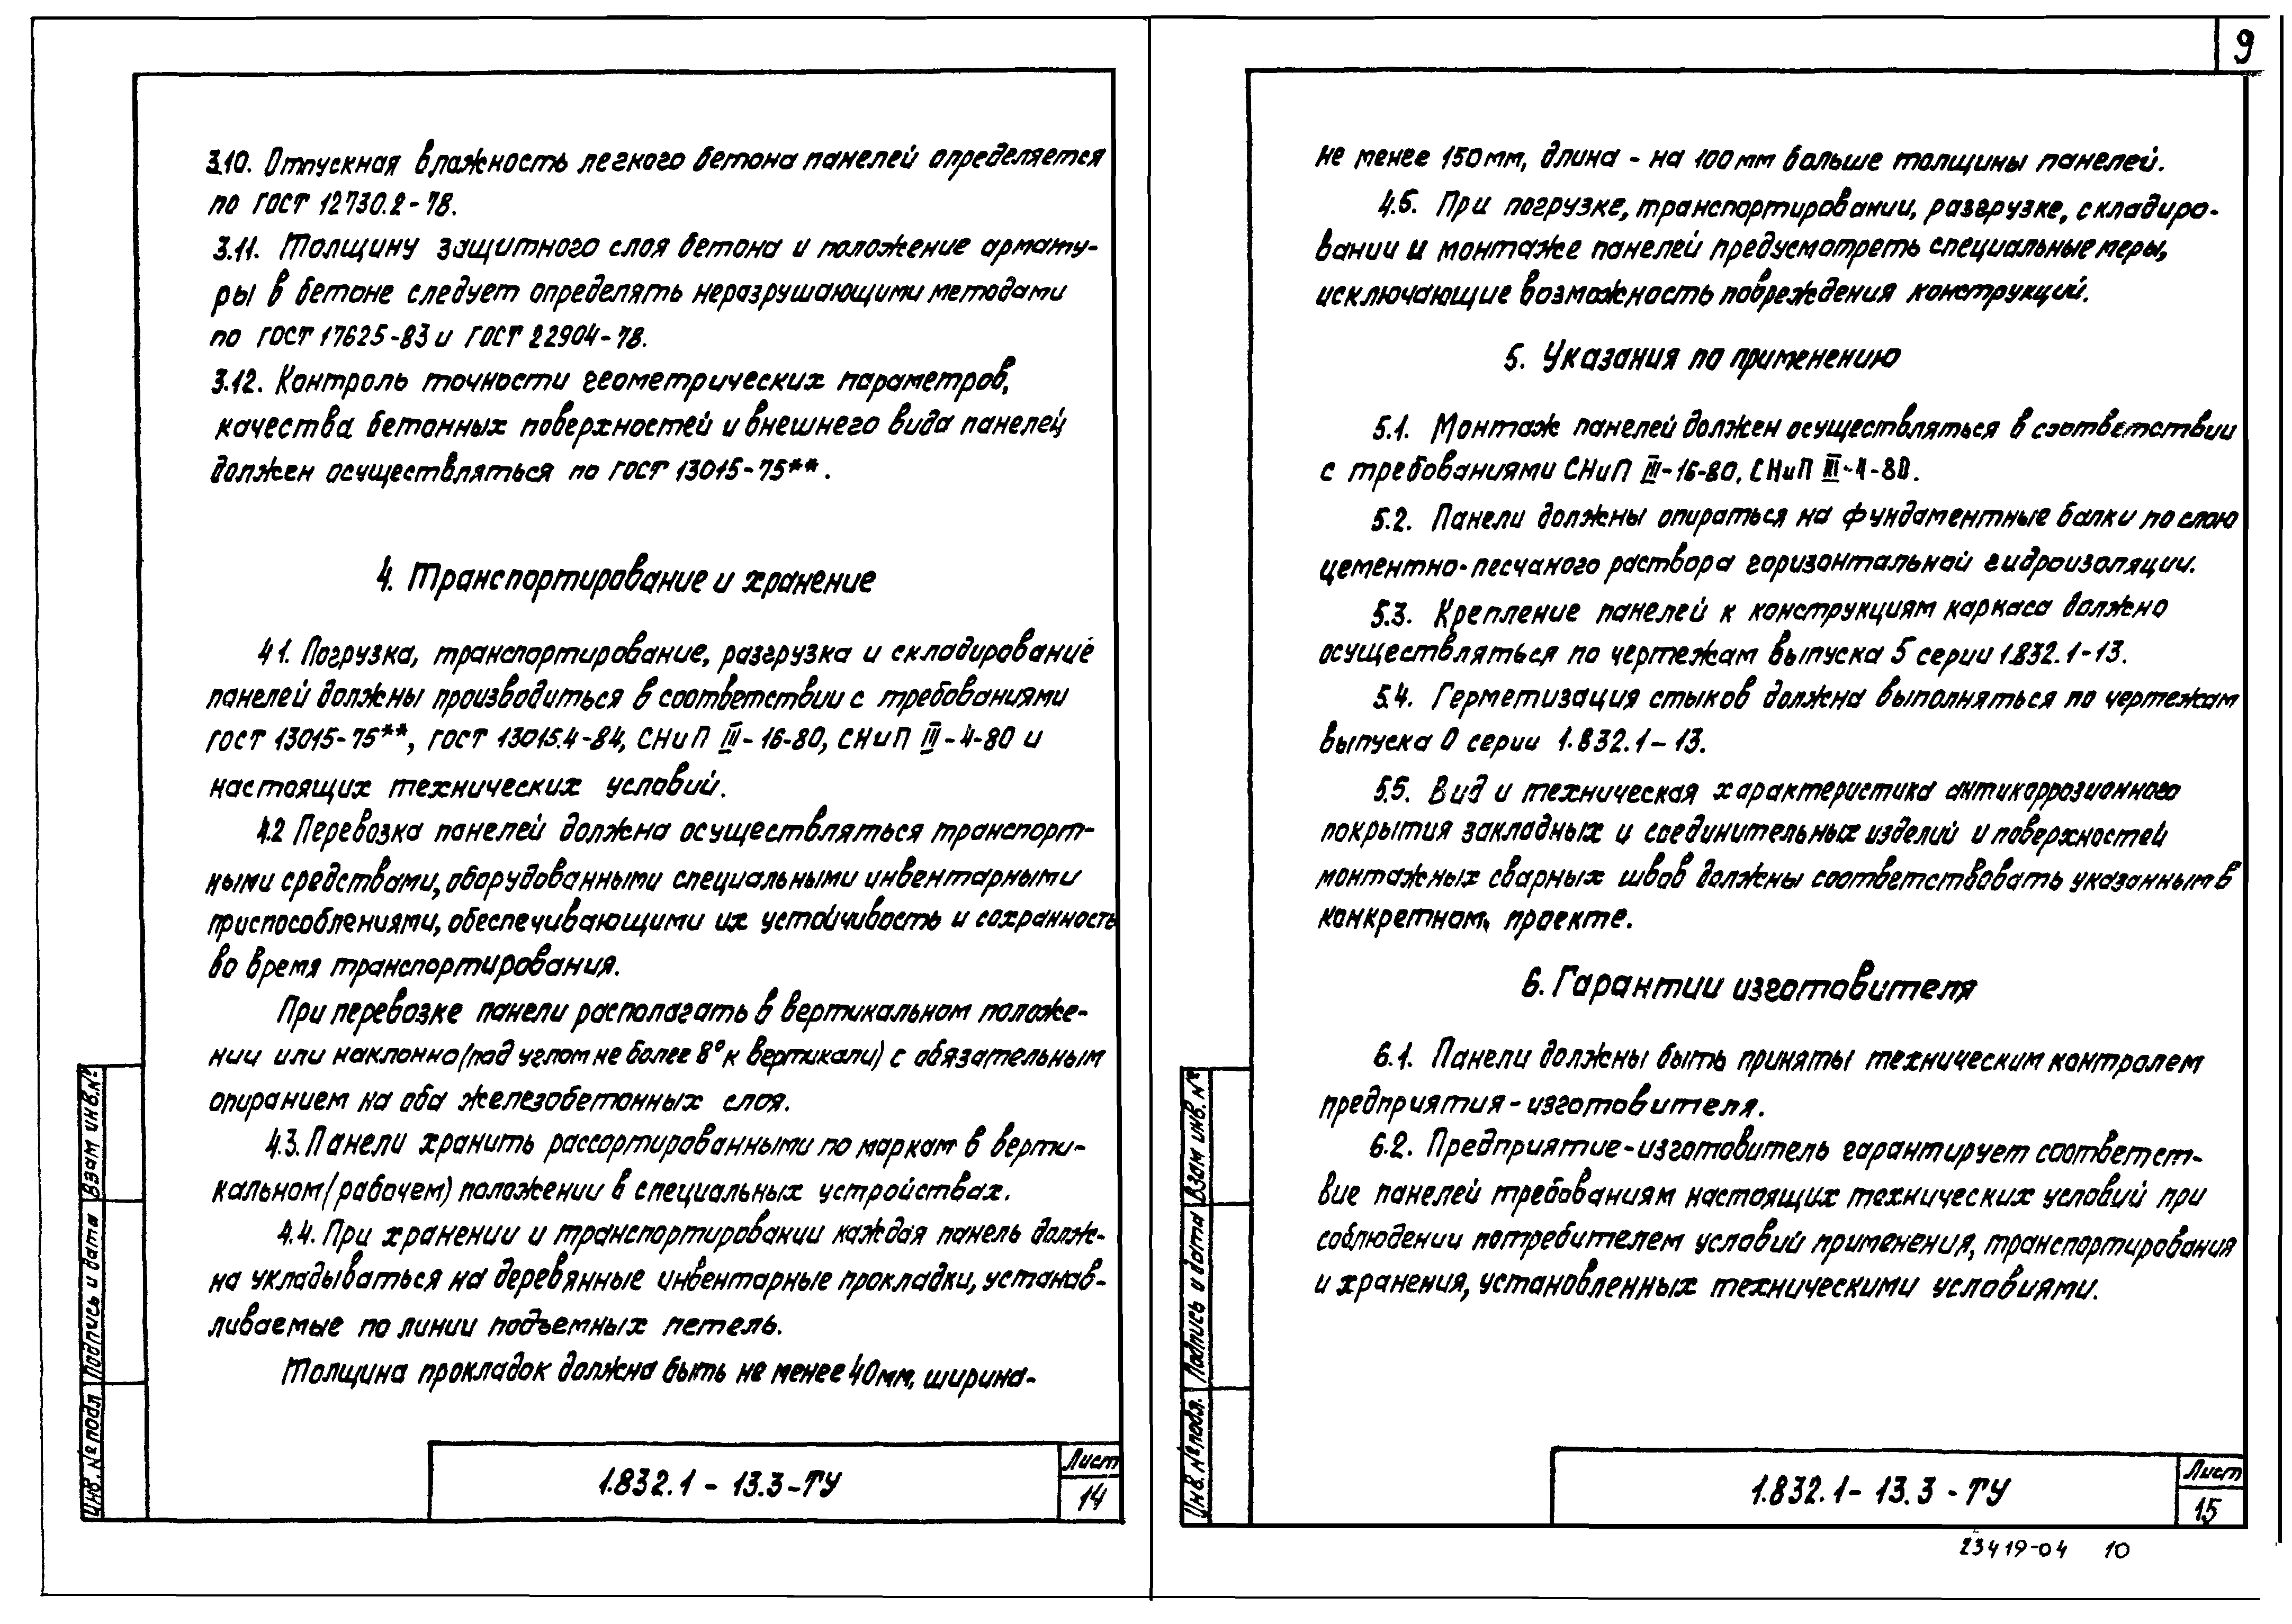 3.10. Отпускная влажность легкого бетона панелей определяется
по ГОСТ 12730.2-78.
3.11. Толщину защитного слоя бетона и положение армату-
ры в бетоне следует определять неразрушающими методами
по ГОСТ 17625-83 и ГОСТ 22904-78.
3.12. Контроль точности геометрических параметров,
качества бетонных поверхностей и внешнего вида панелей
должен осуществляться по ГОСТ 13015-75**.
4. Транспортирование и хранение
4.1. Погрузка, транспортирование, разгрузка и складирование
панелей должны производиться в соответствии с требованиями
ГОСТ 13015-75**, ГОСТ 13015.4-84, СНиП III-16-80, СНиП III-4-80 и
настоящих технических условий.
4.2 Перевозка панелей должна осуществляться транспорт-
ными средствами, оборудованными специальными инвентарными
приспособлениями, обеспечивающими их устойчивость и сохранность
во время транспортирования.
При перевозке панели располагать в вертикальном положе-
нии или наклонно (под углом не более 8° к вертикали) с обязательным
опиранием на оба железобетонных слоя.
4.3. Панели хранить рассортированными по маркам в верти-
кальном (рабочем) положении в специальных устройствах.
4.4. При хранении и транспортировании каждая панель долж-
на укладываться на деревянные инвентарные прокладки, устанав-
ливаемые по линии подъемных петель.
Толщина прокладок должна быть не менее 40мм, ширина-
Взам инв.№
Подпись и дата
Инв. № подл
1.832.1 - 13.3-ТУ
Лист
14
9
не менее 150мм, длина - на 100мм больше толщины панелей.
4.5. При погрузке, транспортировании, разгрузке, складиро-
вании и монтаже панелей предусмотреть специальные меры,
исключающие возможность повреждения конструкций.
5. Указания по применению
5.1. Монтаж панелей должен осуществляться в соответствии
с требованиями СНиП III-16-80, СНиП III-4-80.
5.2. Панели должны опираться на фундаментные балки по слою
цементно-песчаного раствора горизонтальной гидроизоляции.
5.3. Крепление панелей к конструкциям каркаса должно
осуществляться по чертежам выпуска 5 серии 1.832.1-13.
5.4. Герметизация стыков должна выполняться по чертежам
выпуска 0 серии 1.832.1-13.
5.5. Вид и техническая характеристика антикоррозионного
покрытия закладных и соединительных изделий и поверхностей
монтажных сварных швов должны соответствовать указанным в
конкретном проекте.
6. Гарантии изготовителя
6.1. Панели должны быть приняты техническим контролем
предприятия-изготовителя.
6.2. Предприятие-изготовитель гарантирует соответст-
вие панелей требованиям настоящих технических условий при
соблюдении потребителем условий применения, транспортирования
и хранения, установленных техническими условиями.
Взам инв. №
Подпись и дата
Инв. № подл.
1.832.1- 13.3 - ТУ
Лист
15
23419-04 10